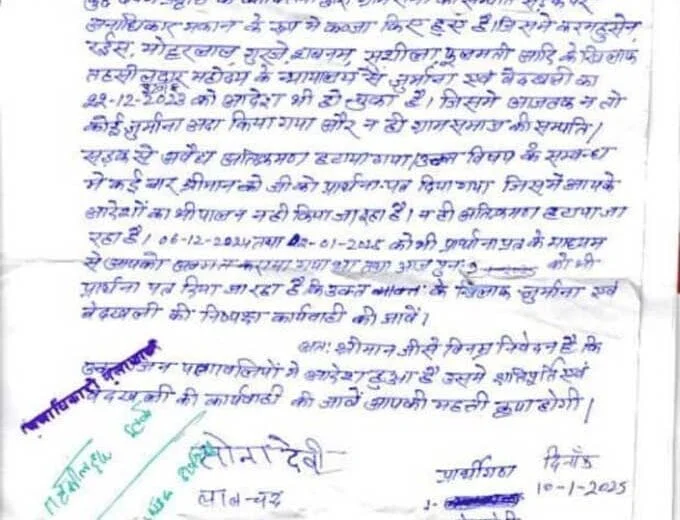 अनाधिकार मकान के रूप मे कब्जा किए हुऐ है। जिसमे करमहुसेन,
रईस, मोहरलाल, गुरखे, शबनम, सुशीला फूलमती आदि के खिलाफ
तहसीलदार महोदय के न्यायालय से जुर्माना एवं बेदखली का
22-12-2023 को आदेश भी हो चुका है। जिसमे आजतक न तो
कोई जुर्माना अदा किया गया और न ही ग्राम समाज की सम्पति/
सड़क से अवैध अतिक्रमण हटाया गया। उक्त विषय के सम्बन्ध
मे कई बार श्रीमान को जी को प्रार्थना पत्र दिया गया जिसमें आपके
आदेशों का भी पालन नही किया जा रहा है। न ही अतिक्रमण हटाया जा
रहा है। 06-12-2024 तथा 02-01-2025 को भी प्रार्थना पत्र के माध्यम
से आपको अवगत कराया गया था तथा आज पुनः को भी
प्रार्थना पत्र दिया जा रहा है कि उक्त के खिलाफ जुर्माना एवं
बेदखली की निष्पक्ष कार्यवाही की जावें।
अतः श्रीमान जी से विनम्र निवेदन है कि
उक्त जिन पत्रावलियों मे आदेश हुआ है उसमे क्षतिपूर्ति एवं
बेदखली की कार्यवाही की जावें आपकी महती कृपा होगी।
सोना देवी
लाल-चन्द
प्रार्थीगण
दिनाँक
10-1-2025